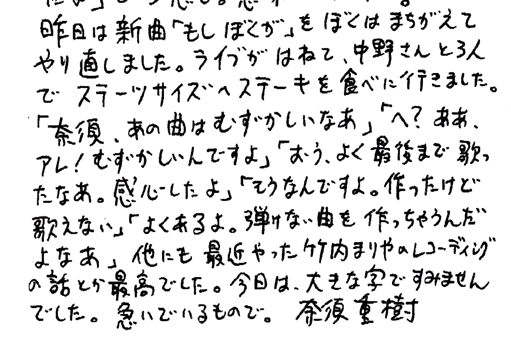 昨日は新曲「もしぼくが」をぼくはまちがえて
やり直しました。ライブがはねて、中野さんと3人
でステーツサイズへステーキを食べに行きました。
「奈須、あの曲はむずかしいなあ」「へ?ああ、
アレ!むずかしいんですよ」「おう、よく最後まで歌っ
たなあ。感心したよ」「そうなんですよ。作ったけど
歌えない」「よくあるよ。弾けない曲を作っちゃうんだ
よなあ」他にも最近やった竹内まりやのレコーディング
の話とか最高でした。今日は、大きな字ですみません
でした。急いでいるもので。 奈須重樹